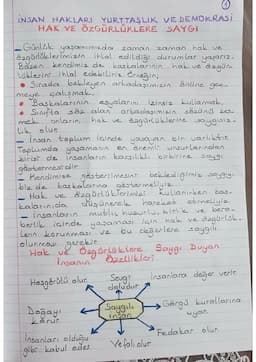 ①
İNSAN HAKLARI YURTTAŞLIK VE DEMOKRASİ
HAK VE ÖZGÜRLÜKLERE SAYGI
– Günlük yaşamımızda zaman zaman hak ve
özgürlüklerimizin ihlal edildiği durumlar yaşarız.
Bazen kendimiz de başkalarının hak ve özgür-
lüklerini ihlal edebiliriz. Örneğin;
• Sırada bekleyen arkadaşımızın önüne geç-
meye çalışmak,
• Başkalarının eşyalarını izinsiz kullanmak,
• Sınıfta söz alan arkadaşımızın sözünü kes-
mek bunların, hak ve özgürlüklerine saygısız-
lık olur.
– İnsan toplum içinde yaşayan bir varlıktır.
Toplumda yaşamanın en önemli unsurlarından
biri de insanların karşılıklı birbirine saygı
göstermesidir.
– Kendimize gösterilmesini beklediğimiz saygıyı
biz de başkalarına göstermeliyiz.
– Hak ve özgürlüklerimizi kullanırken baş-
kalarını da düşünerek hareket etmeliyiz.
– İnsanların mutlu, huzurlu, birlik ve bera-
berlik içinde yaşaması için hak ve özgürlük-
lerin korunması ve bu değerlere saygılı
olunması gerekir.
Hak ve Özgürlüklere Saygı Duyan
İnsanın Özellikleri
Hoşgörülü olur.
Sevgi
doludur.
İnsanlara değer verir.
Doğayı
korur.
Saygılı
insan
Görgü kurallarına
uyar.
İnsanları olduğu
gibi kabul eder.
Vefalı olur.
Fedakar olur.